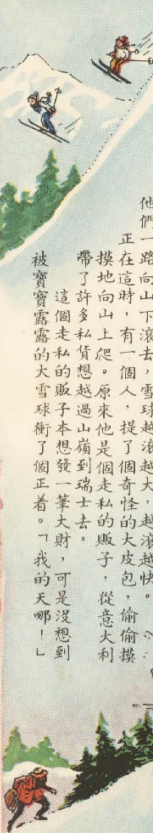 他們一路向山下滾去，雪球越滾越大，越滾越快。
正在這時，有一個人，提了個奇怪的大皮包，偷偷摸
摸地向山上爬。原來他是個走私的販子，從意大利
帶了許多私貨想越過山嶺到瑞士去。
這個走私的販子本想發一筆大財，可是沒想到
被寶寶露露的大雪球衝了個正着。「我的天哪！」